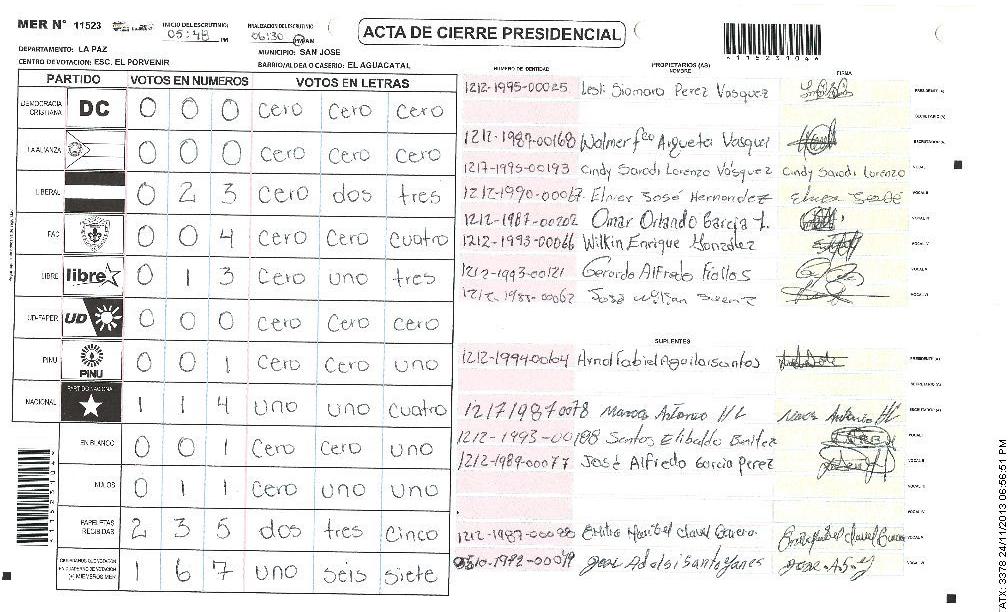 MER N° 11523
INICIO DEL ESCRUTINIO: 05:48 PM
FINALIZACION DEL ESCRUTINIO: 06:30 PM AM
ACTA DE CIERRE PRESIDENCIAL
4115231046
DEPARTAMENTO: LA PAZ
MUNICIPIO: SAN JOSE
CENTRO DE VOTACION: ESC. EL PORVENIR
BARRIO/ALDEA O CASERIO: EL AGUACATAL
PARTIDO VOTOS EN NUMEROS VOTOS EN LETRAS
DEMOCRACIA CRISTIANA DC 0 0 0 Cero Cero Cero
LA ALIANZA 0 0 0 Cero Cero Cero
LIBERAL 0 2 3 Cero dos tres
FAC 0 0 4 Cero Cero Cuatro
LIBRE libre 0 1 3 Cero uno tres
UD-FAPER UD 0 0 0 Cero Cero Cero
PINU PINU 0 0 1 Cero Cero uno
NACIONAL PARTIDO NACIONAL 1 1 4 uno uno Cuatro
EN BLANCO 0 0 1 Cero Cero uno
NULOS 0 1 1 Cero uno uno
PAPELETAS RECIBIDAS 2 3 5 dos tres Cinco
(+) MIEMBROS MER 1 6 7 uno seis siete
NUMERO DE IDENTIDAD PROPIETARIOS (AS) NOMBRE FIRMA
1212-1995-00025 Lesli Siomara Perez Vasquez PRESIDENTE (A)
SECRETARIO (A)
1212-1987-00168 Walmer fco Argueta Vasquez
1217-1995-00193 Cindy Sarodi Lorenzo Vásquez Cindy Sarodi Lorenzo VOCAL I
1212-1990-00067 Elmer José Hernandez VOCAL II
1212-1987-00202 Omar Orlando Garcia L. VOCAL III
1212-1993-00066 Wilkin Enrique Gonzalez VOCAL IV
1212-1993-00121 Gerardo Alfredo Fiallos VOCAL V
José VOCAL VI
SUPLENTES
1212-1994-00164 PRESIDENTE (A)
SECRETARIO (A)
1217 1987 0078 Marcos Antonio
1212-1993-00188 Santos Elibaldo Benitez VOCAL I
1212-1989-00077 José Alfredo Garcia Perez VOCAL II
VOCAL III
VOCAL IV
VOCAL V
VOCAL VI
4115231046
ATX: 3378 24/11/2013 06:56:51 PM